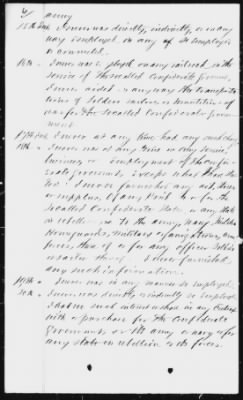 6/ army
15th Int. I never was directly, indirectly, or in any
way employed in any of the employs
so enumerated.
16th " I never was employed on any railroad, in the
service of the so called Confederate Government,
I never aided in any way the transportation
of soldiers sailors or munitions of
war for the so called Confederate Government
17th Int. I never at any time had any such charge
18th " I never was at any time in any service,
business or employment of the Confederate
Government except what I have stated
I never furnished any aid, stores
or supplies, of any kind to or for the
so called Confederate States or any State
in rebellion or to the army, navy, militia
home guards, military organizations, or
forces thereof or for any officer soldier
or sailor thereof. I never furnished
any such information.
19th " I never was in any manner so employed.
20th " I never was directly or indirectly so employed
I had no such interest or share in any
with or purchase for the Confederate
Government or its army or navy or for
any state in rebellion or its forces.